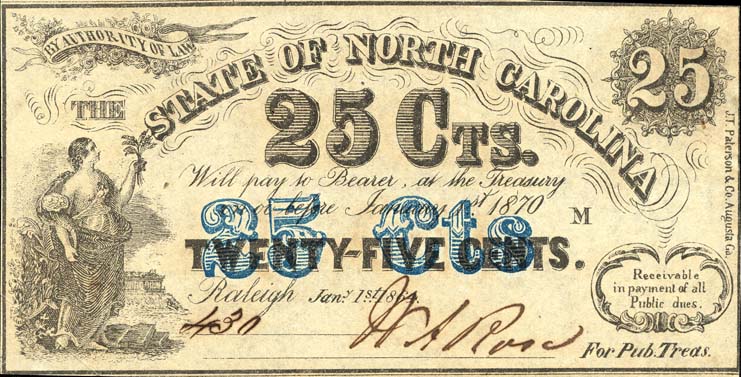 BY AUTHORITY OF LAW
25
THE STATE OF NORTH CAROLINA
25 CTS.
Will pay to Bearer, at the Treasury
on or before January 1st 1870
M
25 Cts
TWENTY-FIVE CENTS.
Raleigh Jany. 1st. 1864.
430
W A Rose
For Pub. Treas.
Receivable
in payment of all
Public dues.
J.T. Paterson & Co. Augusta Ga.